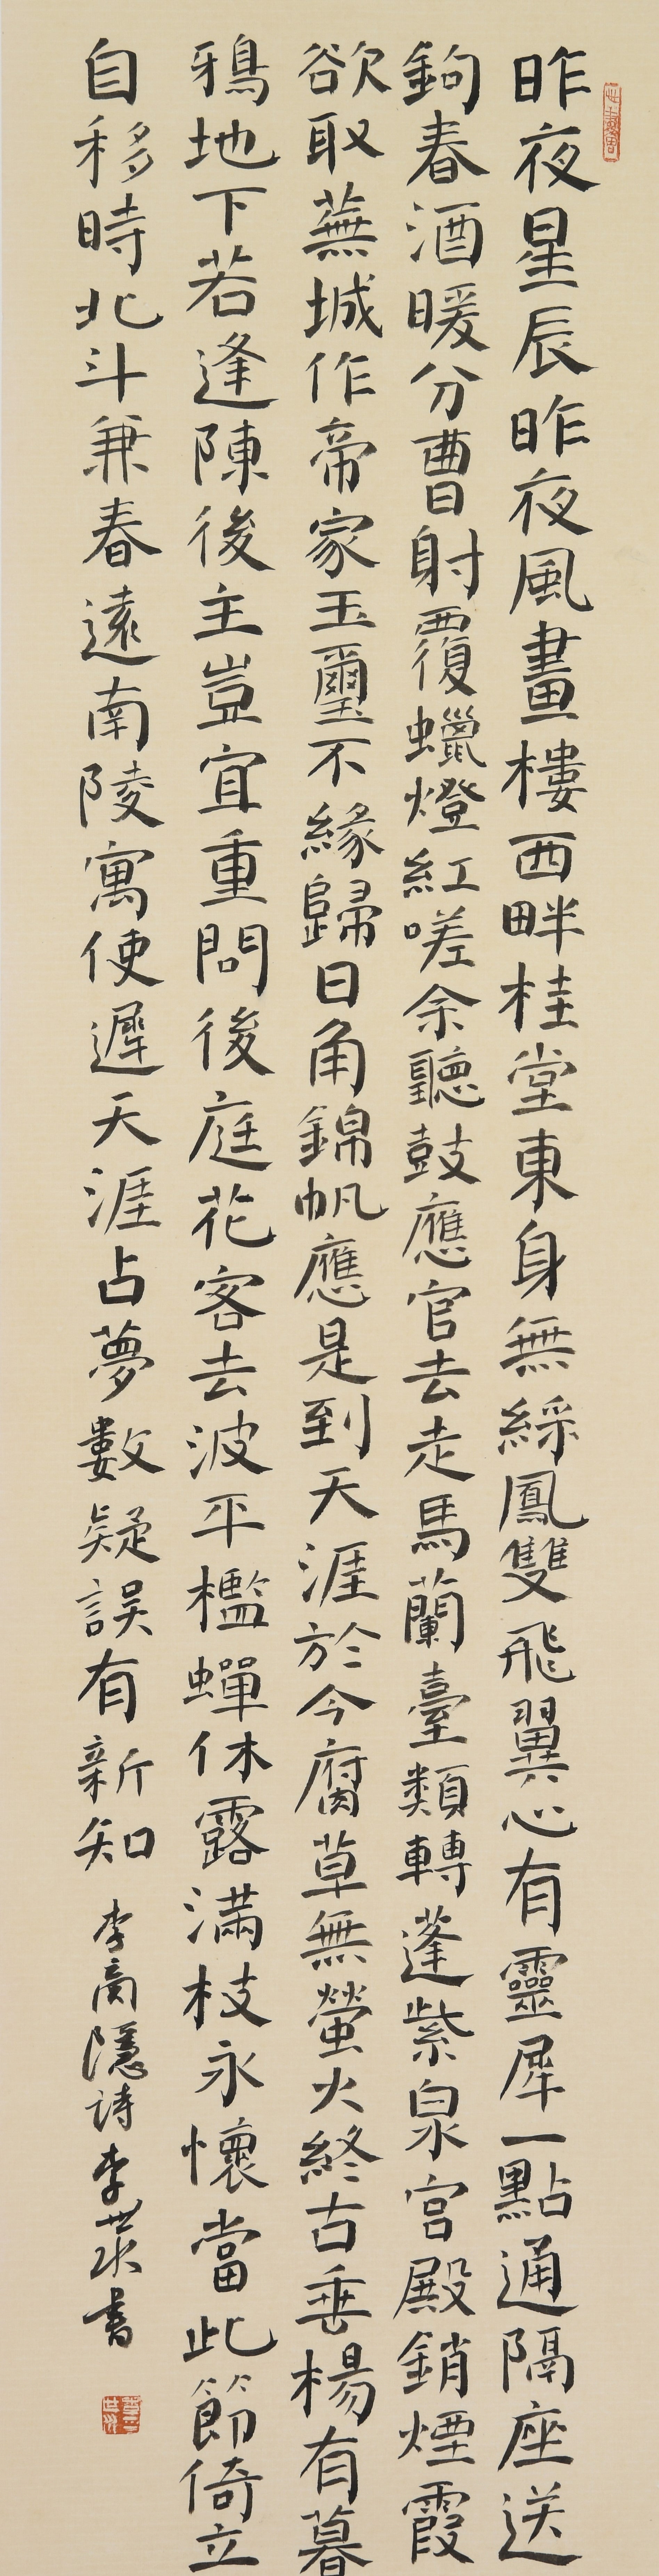 昨夜星辰昨夜風畫樓西畔桂堂東身無綵鳳雙飛翼心有靈犀一點通隔座送
鉤春酒暖分曹射覆蠟燈紅嗟余聽鼓應官去走馬蘭臺類轉蓬紫泉宮殿鎖煙霞
欲取蕪城作帝家玉璽不緣歸日角錦帆應是到天涯於今腐草無螢火終古垂楊有暮
鴉地下若逢陳後主豈宜重問後庭花客去波平檻蟬休露滿枝永懷當此節倚立
自移時北斗兼春遠南陵寓使遲天涯占夢數疑誤有新知
李商隱詩李
書